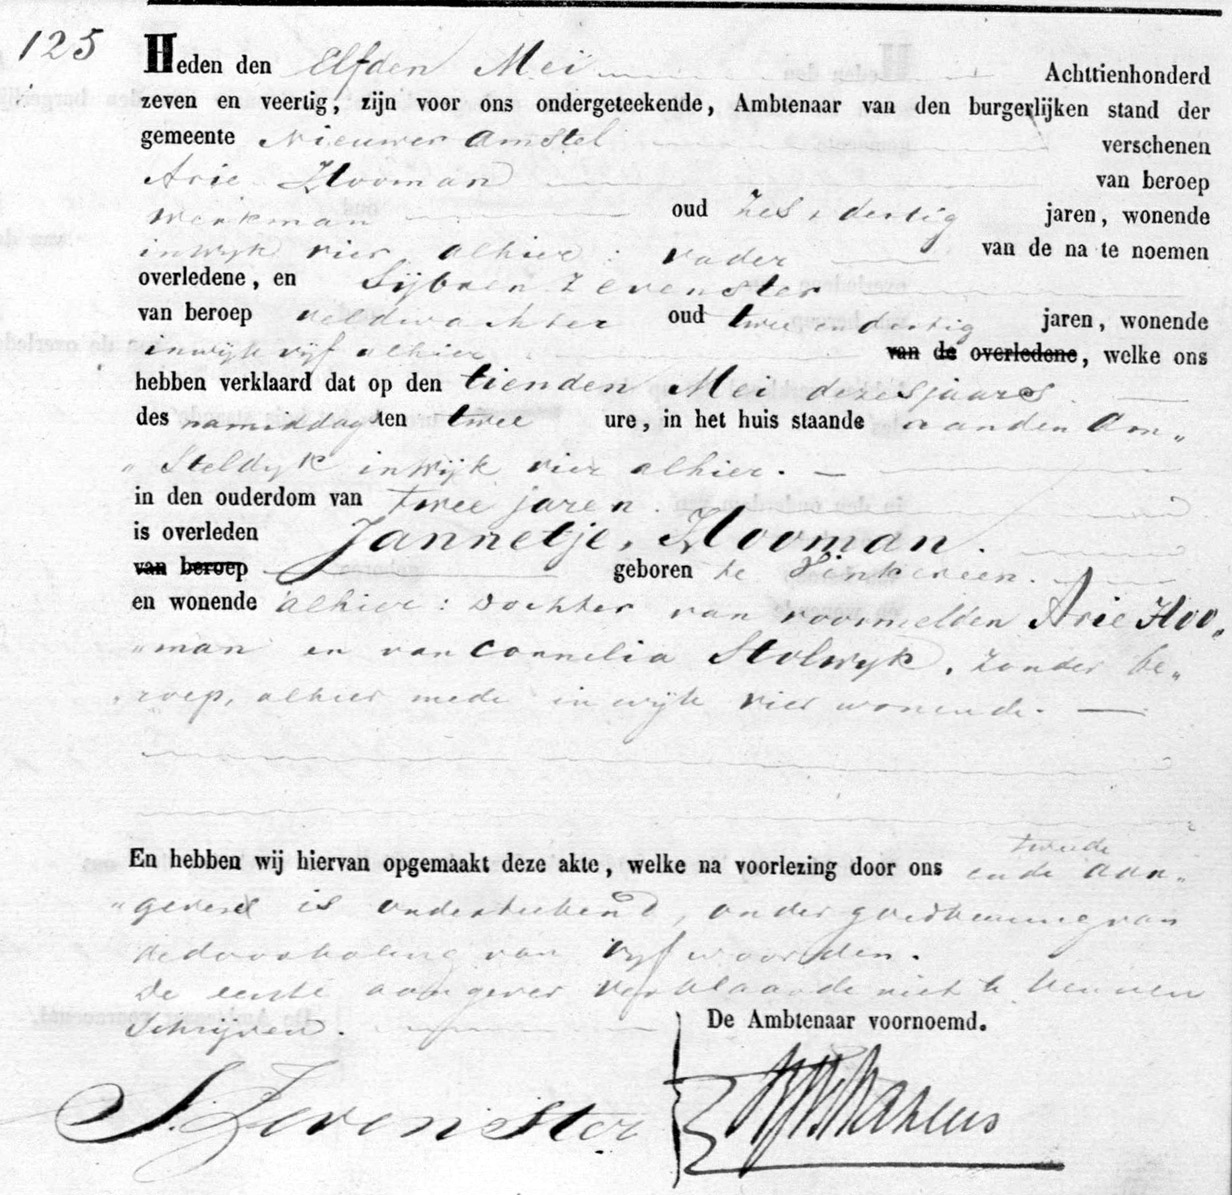 125
Heden den Elfden Mei Achttienhonderd
zeven en veertig, zijn voor ons ondergeteekende, Ambtenaar van den burgerlijken stand der
gemeente Nieuwer Amstel verschenen
Arie Hooman van beroep
Werkman oud Zes & dertig jaren, wonende
in wijk vier alhier : vader van de na te noemen
overledene, en Sijbren Zevenster
van beroep veldwachter oud twee en dertig jaren, wonende
in wijk vijf alhier van de overledene, welke ons
hebben verklaard dat op den tienden Mei dezes jaars
des namiddag ten twee ure, in het huis staande aan den Am„
„Steldyk in wijk vier alhier. —
in den ouderdom van twee jaren.
is overleden Jannetje, Hooman.
van beroep geboren te Vinkeveen.
en wonende alhier : Dochter van voormelden Arie Hoo„
„man en van Cornelia Stolwyk, zonder be„
„roep, alhier mede in wijk vier wonende. —
En hebben wij hiervan opgemaakt deze akte, welke na voorlezing door ons en de tweede aan„
„gever is onderteekend, onder goedkeuring van
de doorhaling van vyf woorden.
De eerste aangever verklaarde niet te kunnen
Schrijven.
De Ambtenaar voornoemd.
S. Zevenster